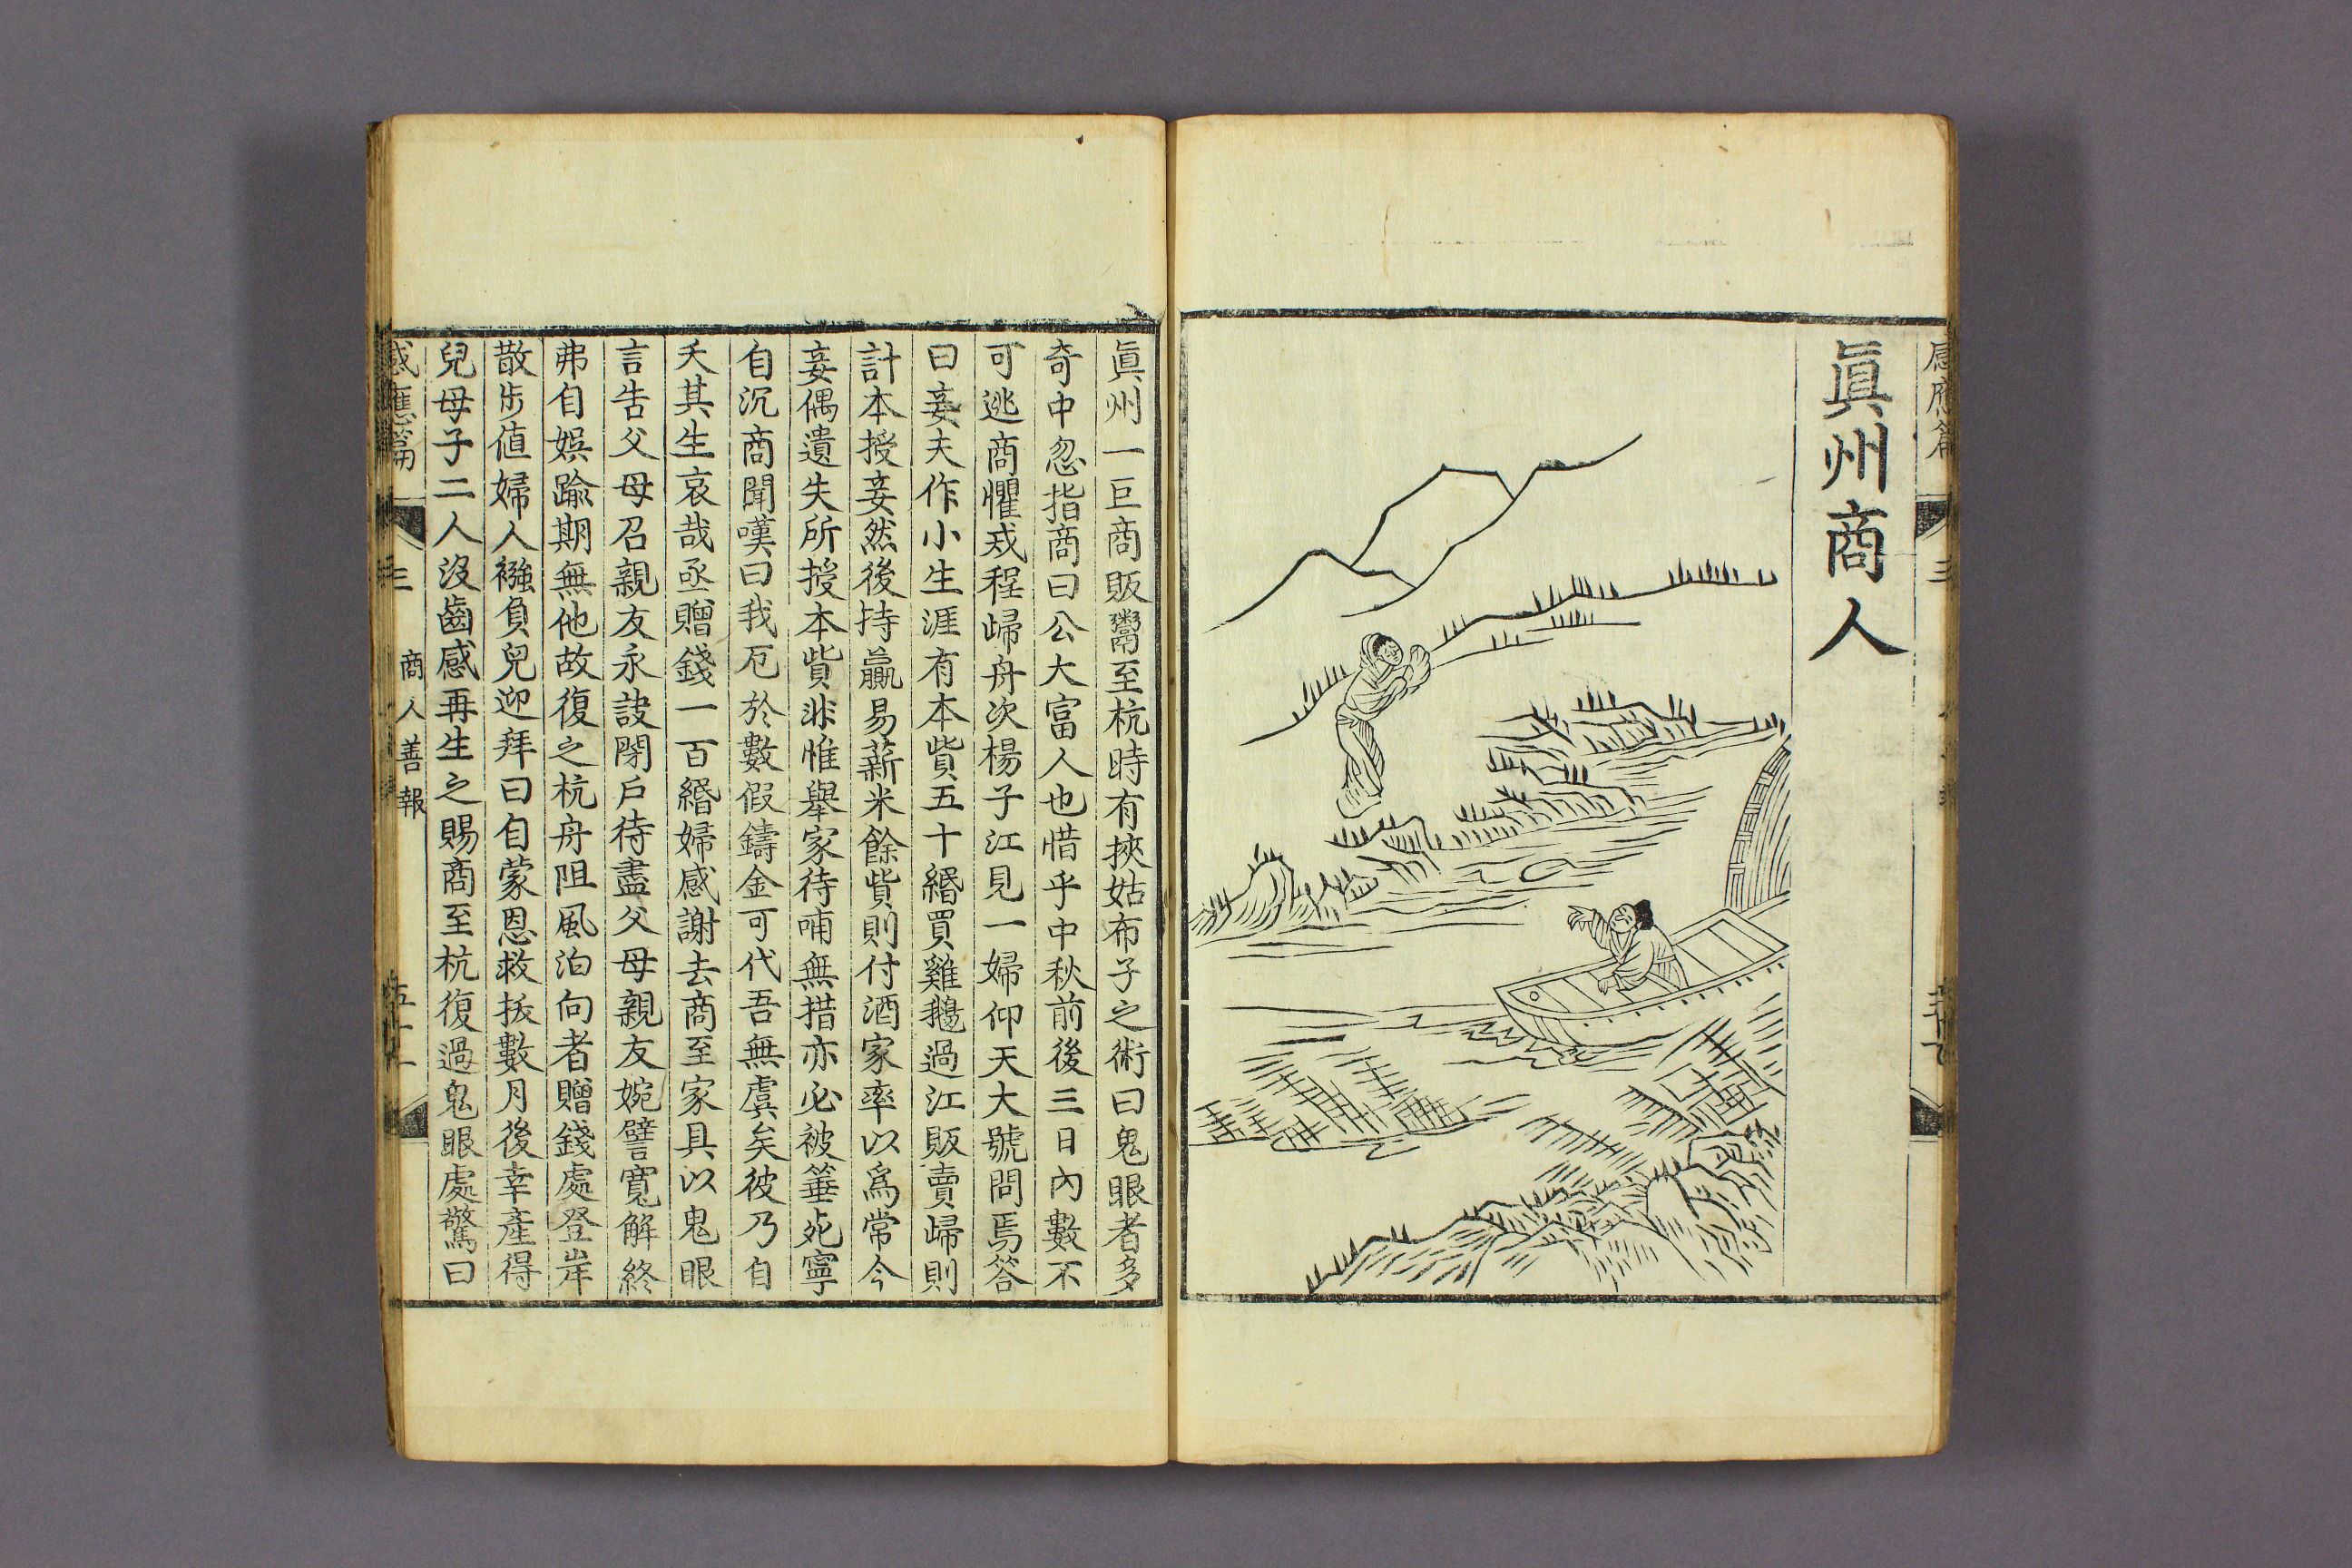 眞州商人
眞州一巨商販鬻至杭時有挾姑布子之術曰鬼眼者多
奇中忽指商曰公大富人也惜乎中秋前後三日內數不
可逃商懼戒程歸舟次楊子江見一婦仰天大號問焉答
曰妾夫作小生涯有本貲五十緡買雞鵝過江販賣歸則
計本授妾然後持贏易薪米餘貲則付酒家率以爲常今
妾偶遺失所授本貲非惟舉家待哺無措亦必被箠死寧
自沉商聞嘆曰我厄於數假鑄金可代吾無虞矣彼乃自
夭其生哀哉亟贈錢一百緡婦感謝去商至家具以鬼眼
言告父母召親友永訣閉戶待盡父母親友婉譬寬解終
弗自娛踰期無他故復之杭舟阻風泊向者贈錢處登岸
散步値婦人襁負兒迎拜曰自蒙恩救拔數月後幸產得
兒母子二人沒齒感再生之賜商至杭復過鬼眼處驚曰
感應篇 三 商人善報